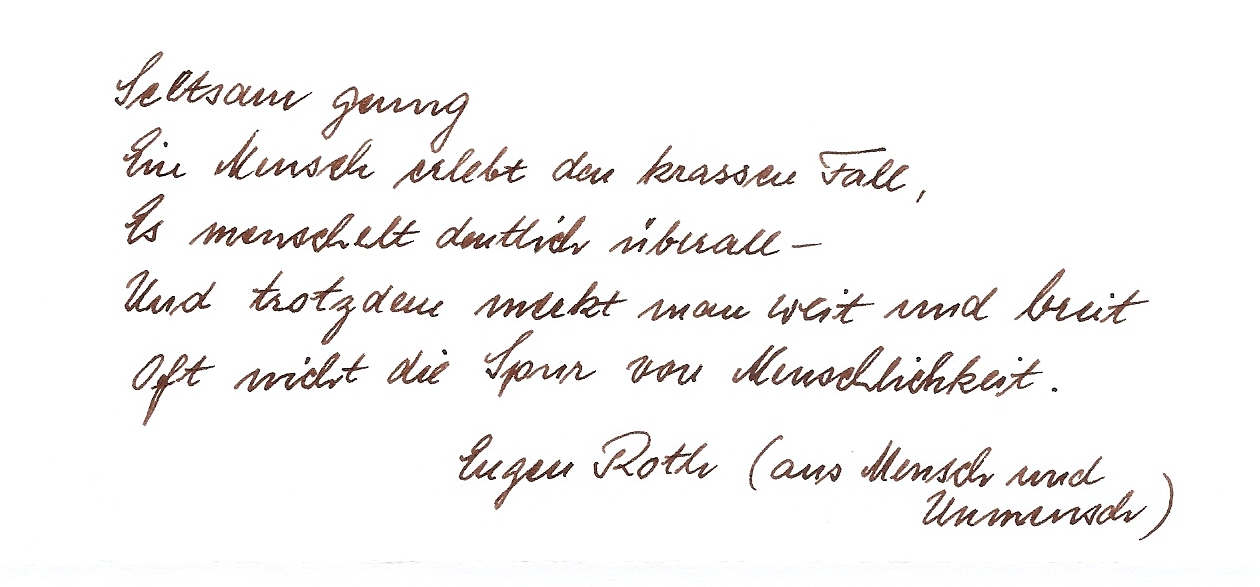 Seltsam genug
Ein Mensch erlebt den krassen Fall,
Es menschelt deutlich überall –
Und trotzdem merkt man weit und breit
Oft nicht die Spur von Menschlichkeit.
Eugen Roth (aus Mensch und
Unmensch)